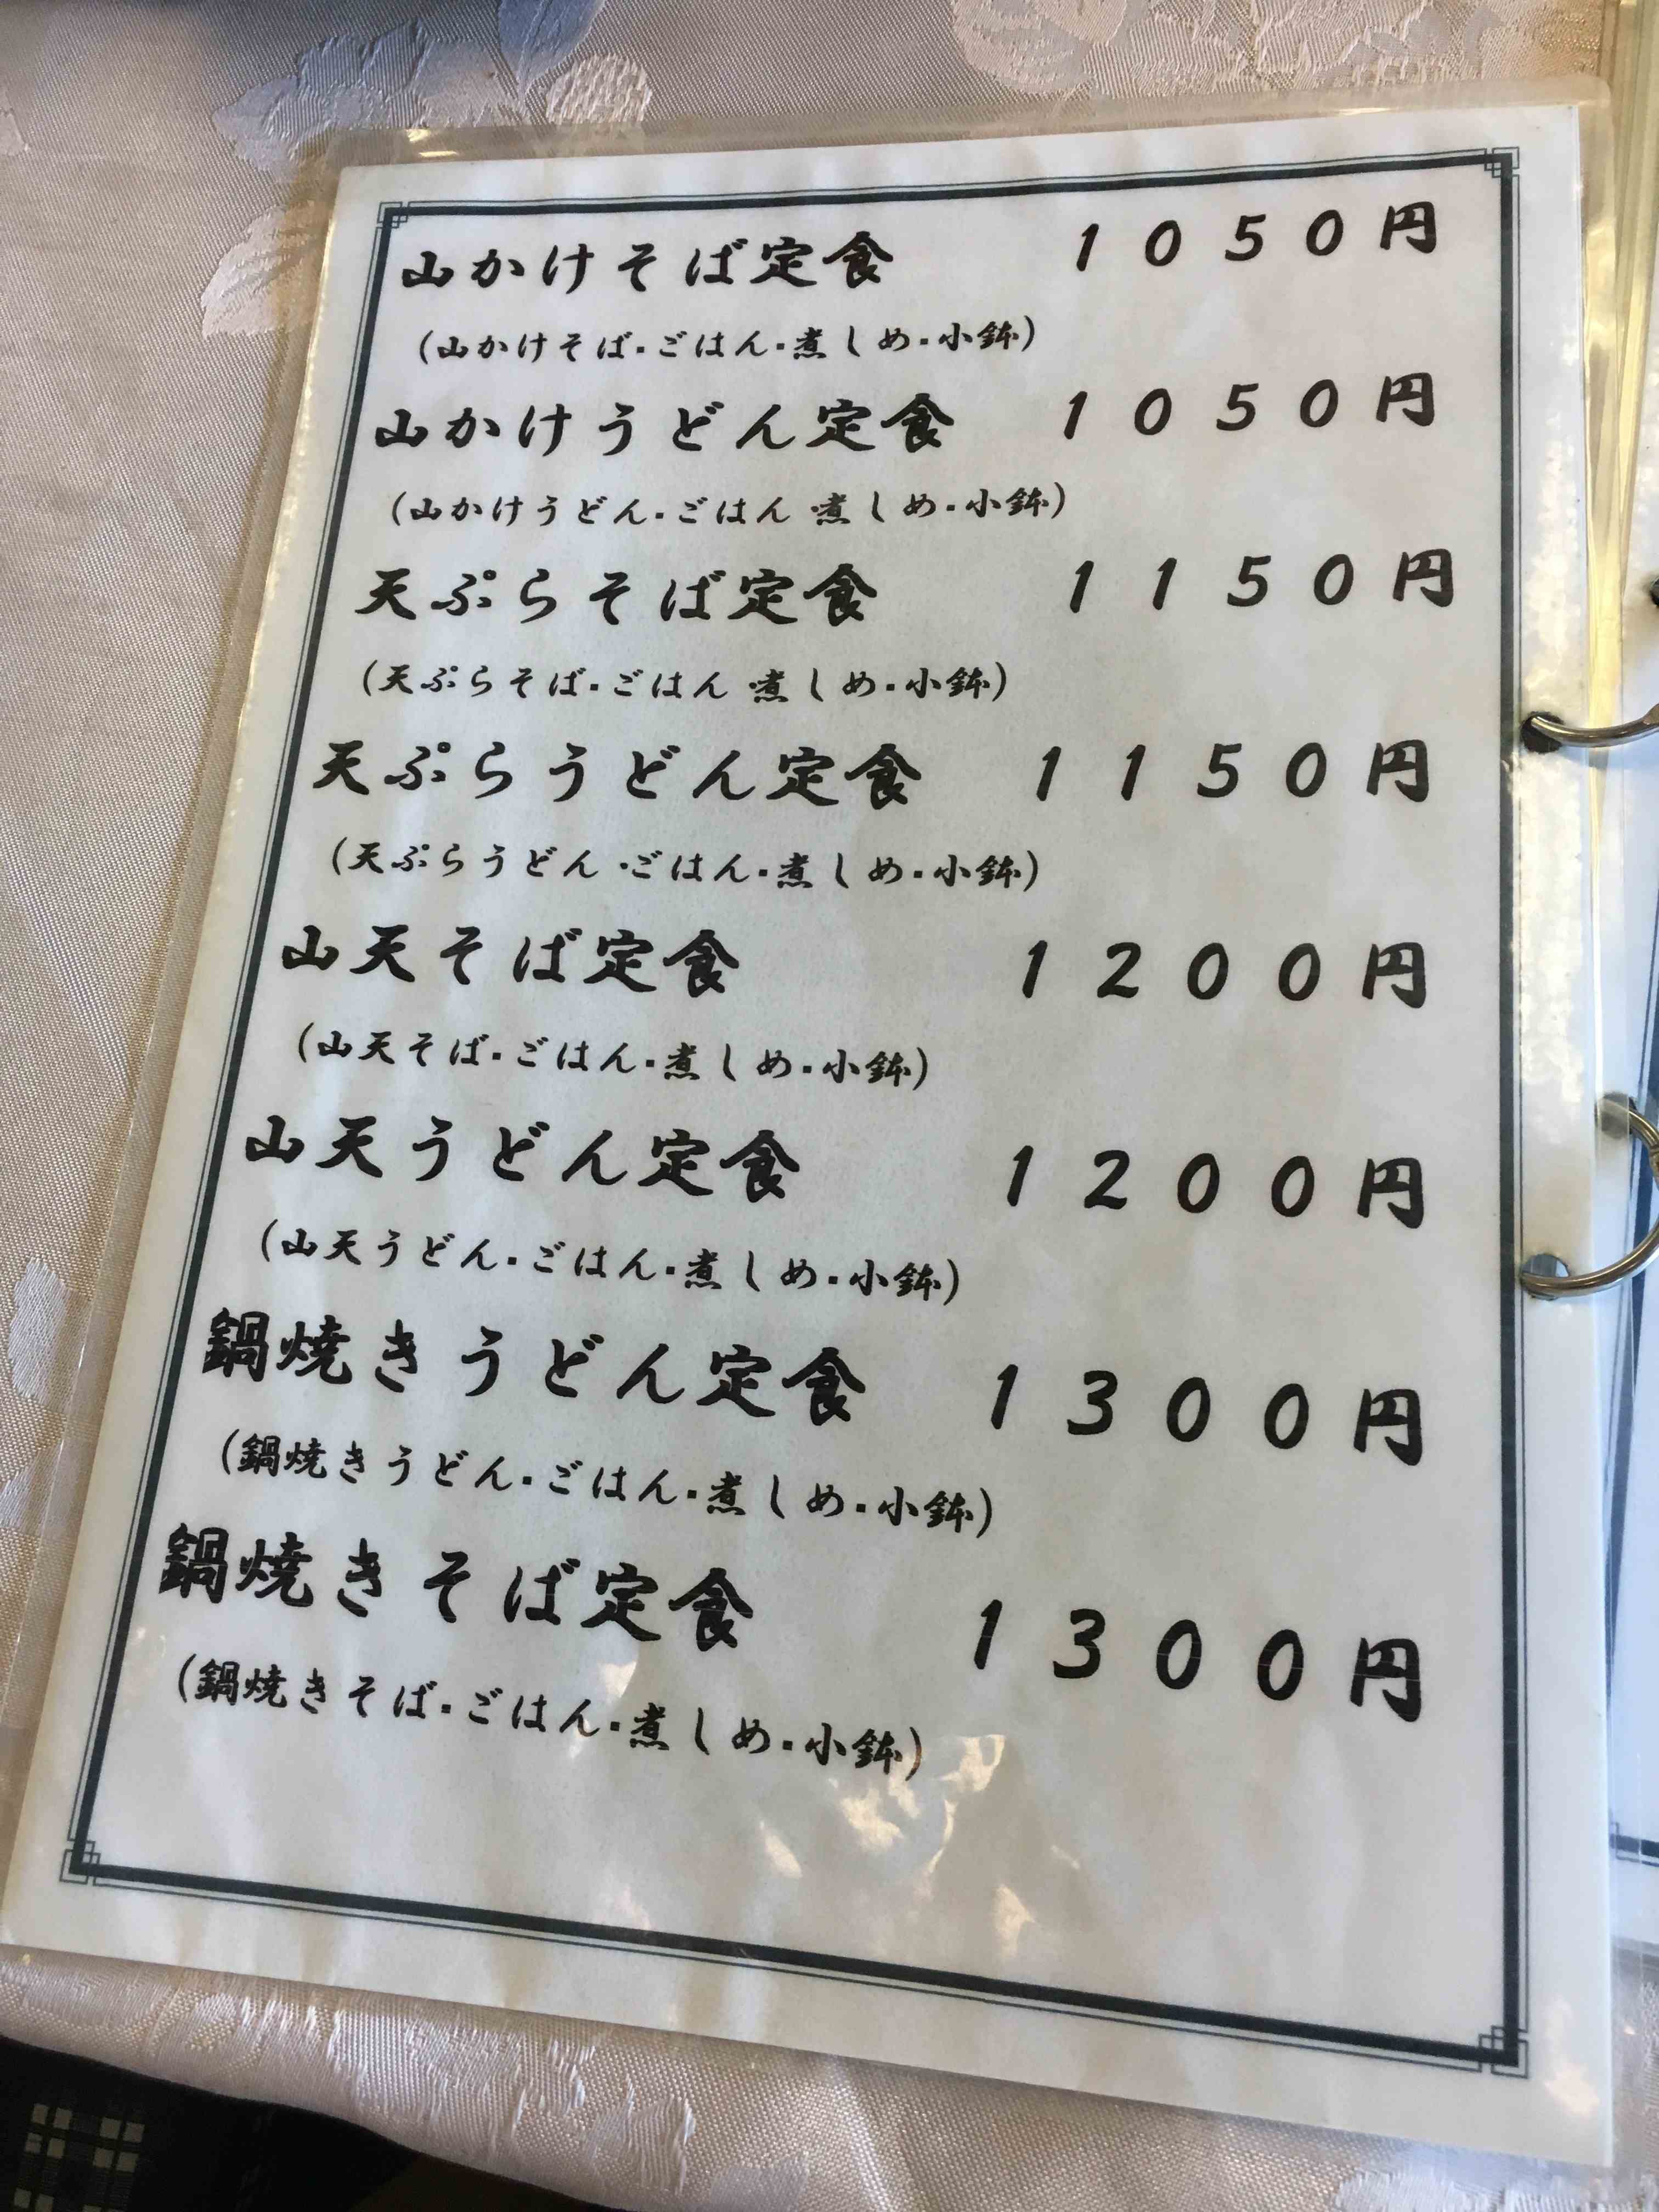 山かけそば定食 1050円
(山かけそば・ごはん・煮しめ・小鉢)
山かけうどん定食 1050円
(山かけうどん・ごはん 煮しめ・小鉢)
天ぷらそば定食 1150円
(天ぷらそば・ごはん 煮しめ・小鉢)
天ぷらうどん定食 1150円
(天ぷらうどん・ごはん・煮しめ・小鉢)
山天そば定食 1200円
(山天そば・ごはん・煮しめ・小鉢)
山天うどん定食 1200円
(山天うどん・ごはん・煮しめ・小鉢)
鍋焼きうどん定食 1300円
(鍋焼きうどん・ごはん・煮しめ・小鉢)
鍋焼きそば定食 1300円
(鍋焼きそば・ごはん・煮しめ・小鉢)